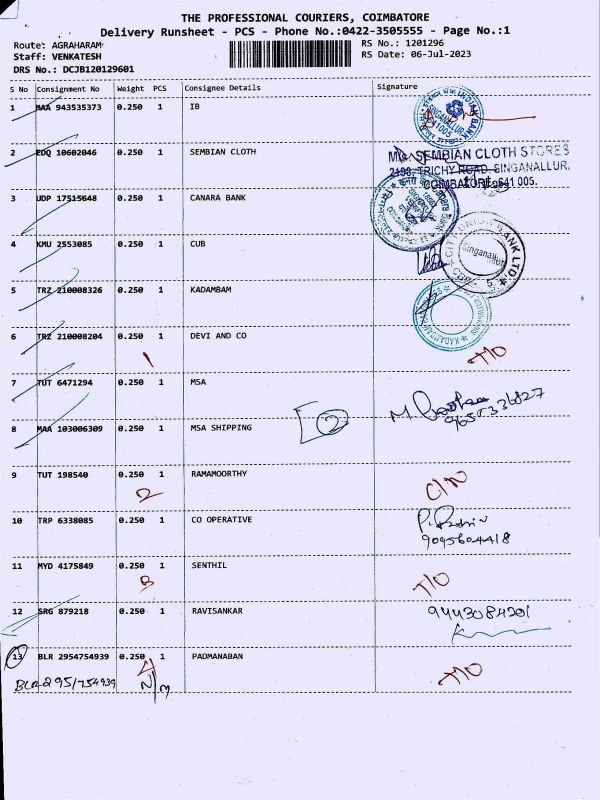 THE PROFESSIONAL COURIERS, COIMBATORE
Delivery Runsheet - PCS - Phone No.:0422-3505555 - Page No.:1
Route: AGRAHARAM
Staff: VENKATESH
DRS No.: DCJB120129601
RS No.: 1201296
RS Date: 06-Jul-2023
S No Consignment No Weight PCS Consignee Details Signature
1 MAA 943535373 0.250 1 IB
INDIAN BANK SINGANALLUR
2 EDQ 10602046 0.250 1 SEMBIAN CLOTH
M/s. SEMBIAN CLOTH STORES
2198, TRICHY ROAD, SINGANALLUR,
COIMBATORE-641 005.
3 UDP 17515648 0.250 1 CANARA BANK
4 KMU 2553085 0.250 1 CUB
CITY UNION BANK LTD Singanallur
5 TRZ 210008326 0.250 1 KADAMBAM
6 TRZ 210008204 0.250 1 DEVI AND CO
1 T/O
7 TUT 6471294 0.250 1 MSA
8 MAA 103006309 0.250 1 MSA SHIPPING
2
9 TUT 198540 0.250 1 RAMAMOORTHY
2 C/N
10 TRP 6338085 0.250 1 CO OPERATIVE
9095604418
11 MYD 4175849 0.250 1 SENTHIL
T/O
12 SRG 879218 0.250 1 RAVISANKAR
9443084201
13 BLR 2954754939 0.250 1 PADMANABAN
T/O